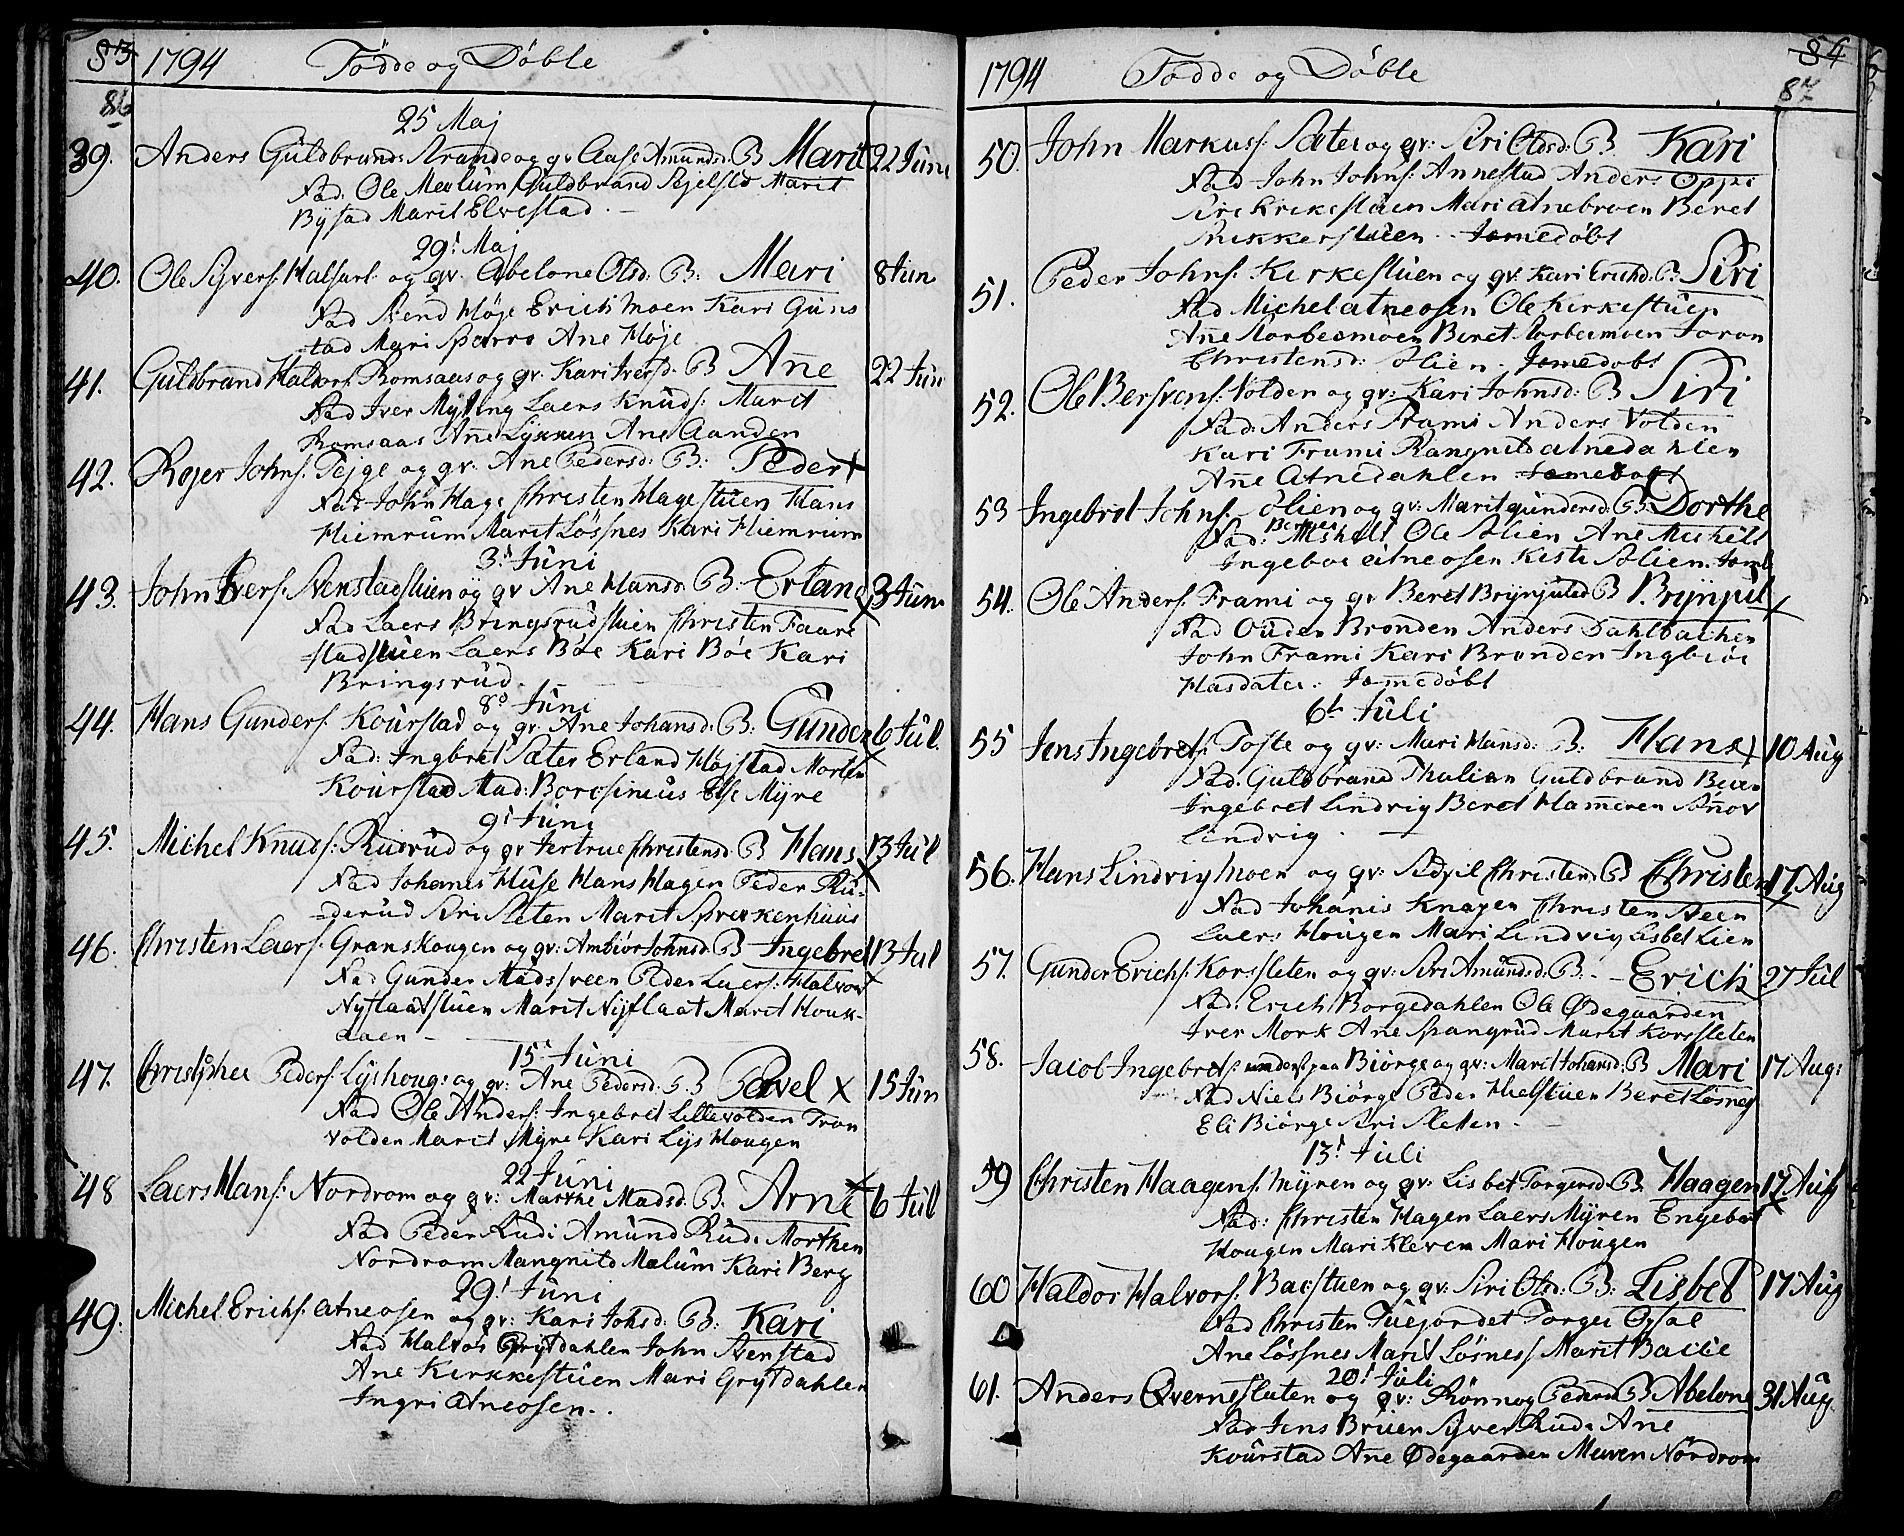 83 1794 Födde og Döble
86
25 Maj
39. Anders Guldbrands Strande og gv Aase Amundsd. B Marit 22 Juni
Fad. Ole Mælum Guldbrand Marit
Bÿstad Marit Elvestad. —
29' Maj
40. Ole Syvers: Halfarl og gv. Abelone Olsd. B: Mari 8 Jun
Fad Svend Höje Erich Moen Kari Guns
tad Mari Sparro Ane Höje
41. Guldbrand Haldors. Romsaas og gv. Kari Iversd. B Añe 22 Jun
Fad Iver Mÿting Laers Knuds: Marit
Romsaas Añe Lÿkken Ane Aanden
42. Rejer Johns. Tejge og gv. Ane Pedersd: B: Peder +
Fad John Hage Christen Hagestuen Hans
Hiemrum Marit Lössnes Kari Hiemrum
3' Juni
43. John Ivers. Stenstadstuen og gv Ane Hansd. B. Erland 3 Jun.
Fad Laers Bringsrudstuen Christen Faare
stadstuen Laers Böe Kari Böe Kari
Bringsrud.
8' Juni
44. Hans Gunders. Kourstad og gv. Ane Johansd. B: Gunder 6 Jul.
Fad: Ingbret Sæter Erland Höjstad Morten
Kourstad Mad: Borchsenius Else Mÿre
9' Juni
45. Michel Knuds: Rusrud og gv Jertrue Christensd. B Hans 13 Jul
Fad Johanes Huse Hans Hagen Peder Ru-
derud Siri Sleten Marit Sprækenhuus
46. Christen Laers. Granskougen og gv: Ambiör Johnsd. B Ingebret 13 Jul
Fad Gunder Madssveen Peder Laers: Halvor
Nÿflaatstuen Marit Nÿflaat Marit Houk-
aaen —
15' Juni
47. Christopher Peders: Lÿshougs og gv: Ane Pedersd. B Pavel X 15 Jun
Fad Ole Anders. Ingebret Lillevolden Tron
Volden Marit Mÿre Kari Lÿshougen
22 Juni
48 Laers Hans: Nordrom og gv: Marthe Madsd. B. Arne 6 Jul
Fad Peder Rudi Amund Rudi Morthen
Nordrom Mangnild Mælum Kari Berg
29' Juni
49. Michel Erichs. Atneosen og gv: Kari Johsd: B. Kari
Fad Halvor Grÿtdahlen John Stenstad
Ane Kirkkestuen Mari Grÿtdahlen
Ingri Atneosen..
1794 Fodde og Döble 84
87
50. John Markuss. Sæter og gv: Siri Olsd. B. Kari
Fad John Johns: Annestad Anders Oppi
Siri Kirkestuen Mari Atnebroen Beret
Snikkerstuen. Jomedöbt
51. Peder Johns: Kirkestuen og gv: Kari Ericksd. B Siri
Fad Michel Atneosen Ole Kirkestuen
Añe Storbecmoen Beret Storbecmoen Joron
Christensd: Solien. Jomedobt
52. Ole Bersvens. Volden og gv: Kari Johnsd: B Siri
Fad: Anders Frami Anders Volden
Kari Frami Rangnild Atnedahlen
Añe Atnedahlen Jomedobt
53 Ingebret Johns: Solien og gv: Marit gundersd. B. Dorthe
Fad: Mickelt Ole Solien Ane Mickelt
Ingebor Atneosen Kisti Solien. Jomd.
54. Ole Anders. Frami og gv Beret Brÿnjulsd B Brÿnjul +
Fad Ouden Brænden Anders Dahlbakken
John Frami Kari Brænden Ingbiör
Hasdater. Jomedöbt
6t Juli
55 Jens Ingebrets: Tofte og gv: Mari Hansd: B. Hans + 10 Aug
Fad. Guldbrand Thulien Guldbrand
Ingebret Lindvig Beret Hameren Añor
Lindvig. —
56. Hans Lindvig moen og gv: Sidsil Christensd. B Christen 17 Aug
Fad Johanis Knapen Christen Steen
Laers Hougen Mari Lindvig Lisbet Lien
57. Gunder Erichs. Korssleten og gv: Siri Amundsd. B. — Erich 27 Jul
Fad. Erich Borgedahlen Ole Ødegaarden
Iver Mork Ane Spangrud Marit Korssleten
58. Jacob Ingebrets: under paa Biörge og gv: Marit Johansd: B Mari 17 Aug:
Fad Niels Biörge Peder Beret Lösnes
Eli Biörge Siri Sletten. —
13' Juli
59 Christen Haagens. Mÿren og gv: Lisbet Torgersd. B. Haagen 17 Aug
Fad: Christen Hagen Laers Mÿren Engebret
Hougen Mari Kleven Mari Hougen
60 Haldor Halvors. Bacstuen og gv: Siri Olsd. B: Lisbet 17 Aug
Fad Christen Tuejordet Torger
Ane Lössnes Marit Lösness Marit Backe
20' Juli
61. Anders Qvernesluten og gv: Rönnog Pedersd B Abelone 31 Aug.
Fad Jens Bruen Sÿver Rudi Ane
Kourstad Añe Ødegaarden Nordrom